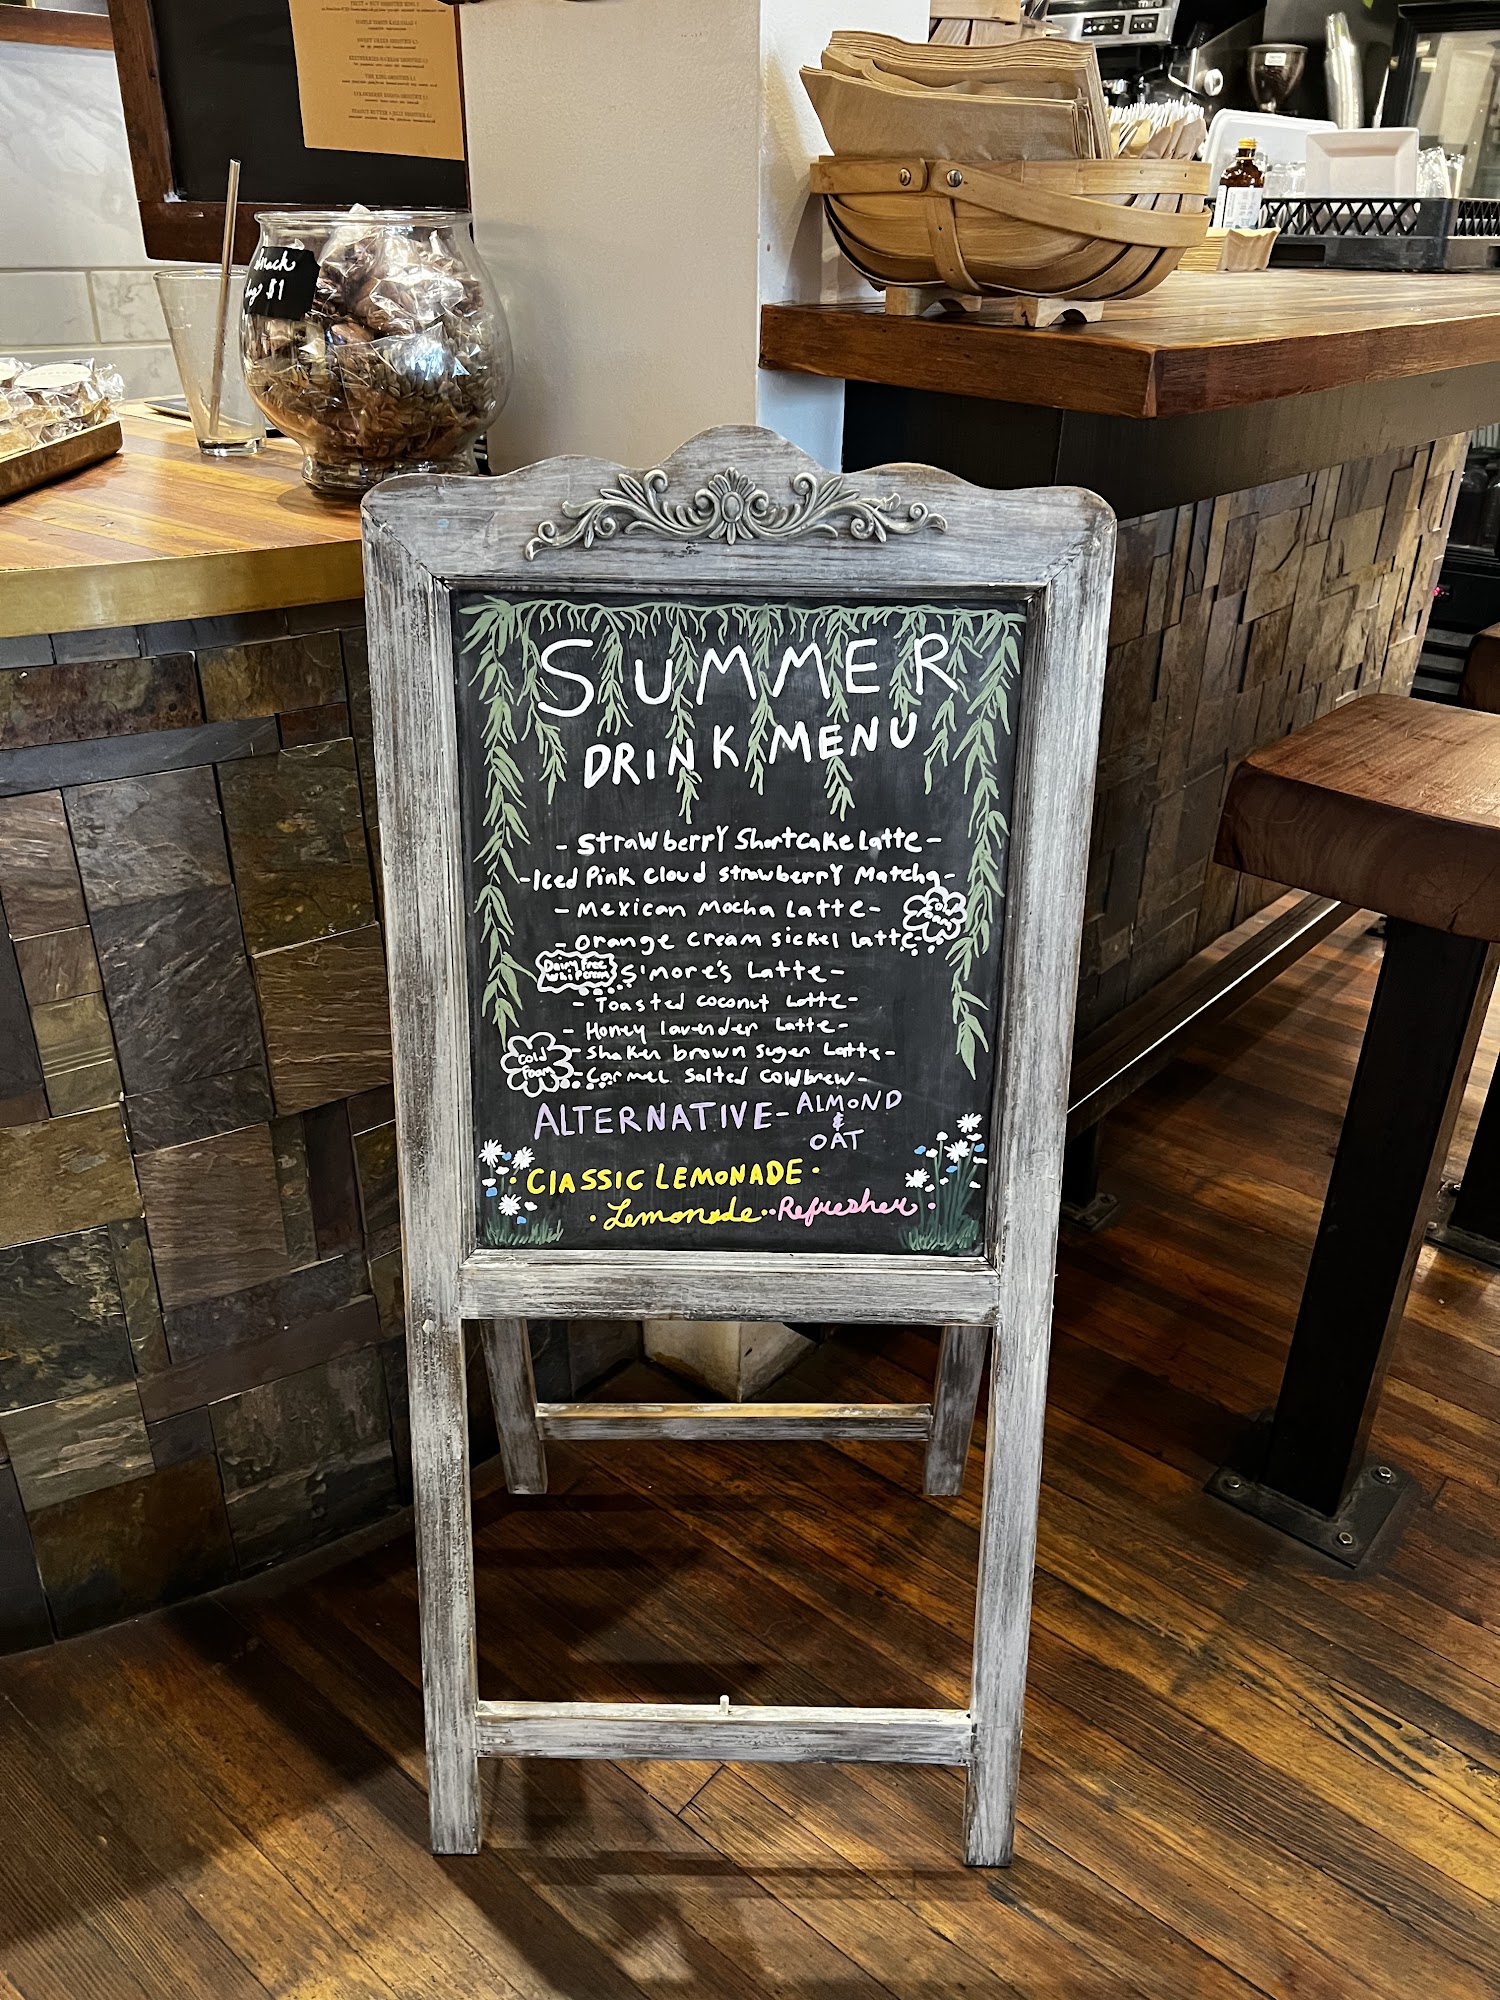 Snack
Bag $1
SUMMER
DRINK MENU
- Strawberry Shortcake Latte -
- Iced Pink Cloud Strawberry Matcha -
- Mexican Mocha Latte -
Cold
foam
- Orange Cream sickel latte -
Dairy free
Whip Cream
S'more's Latte -
- Toasted coconut Latte -
- Honey lavender Latte -
- Shaken brown Suger Latte -
Cold
foam
- Carmel Salted Coldbrew -
ALTERNATIVE - ALMOND
&
OAT
· CLASSIC LEMONADE ·
· Lemonade ·· Refresher ·